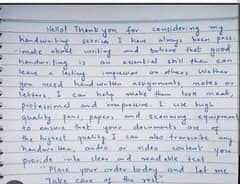 Hello! Thank you for considering my
handwriting service I have always been pass-
ionate about writing and believe that good
handwriting is an essential skill that can
leave a lasting impression on others, Wether
you need handwritten assignments, notes or
letters, I can make them look neat,
professional and impressive. I use high
quality pens, papers, and scanning equipment
to ensure that your documents are of
the highest quality. I can also transcribe any
handwritten, audio or video content you
provide into clear and readable text.
"Place your order today and let me
Take care of the rest"